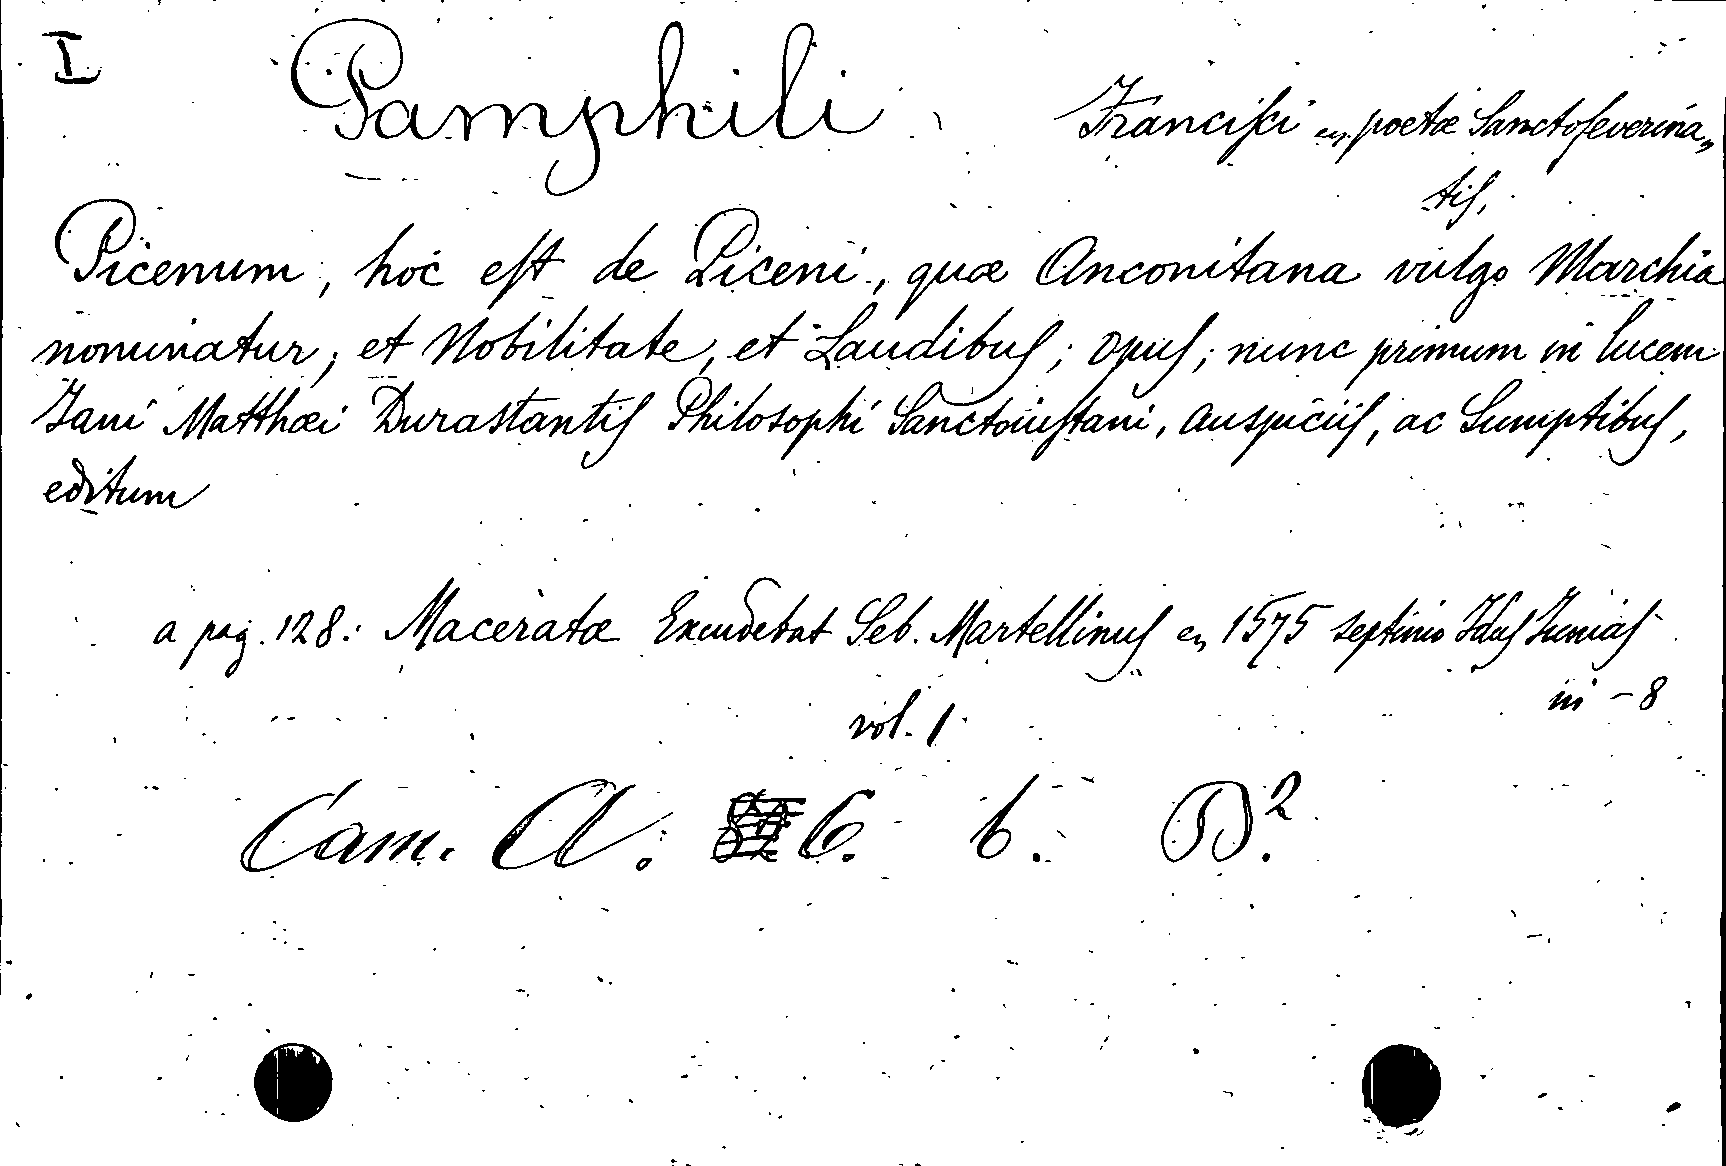 I Pamphili Francisci en poetæ Sanctoseverina„
tis,
Picenum, hoc est de Piceni, quæ Anconitana vulgo Marchia
nominatur, et Nobilitate, et Laudibus; opus; nunc primum in lucem
Jani Matthæi Durastantis Philosophi Sanctoiustani, auspiciis, ac Sumptibus,
editum
a pag. 128: Maceratæ Excudebat Seb. Martellinus en 1575 septimo Idus Junias
in - 8
vol. 1
Cam. A. C. b. D².